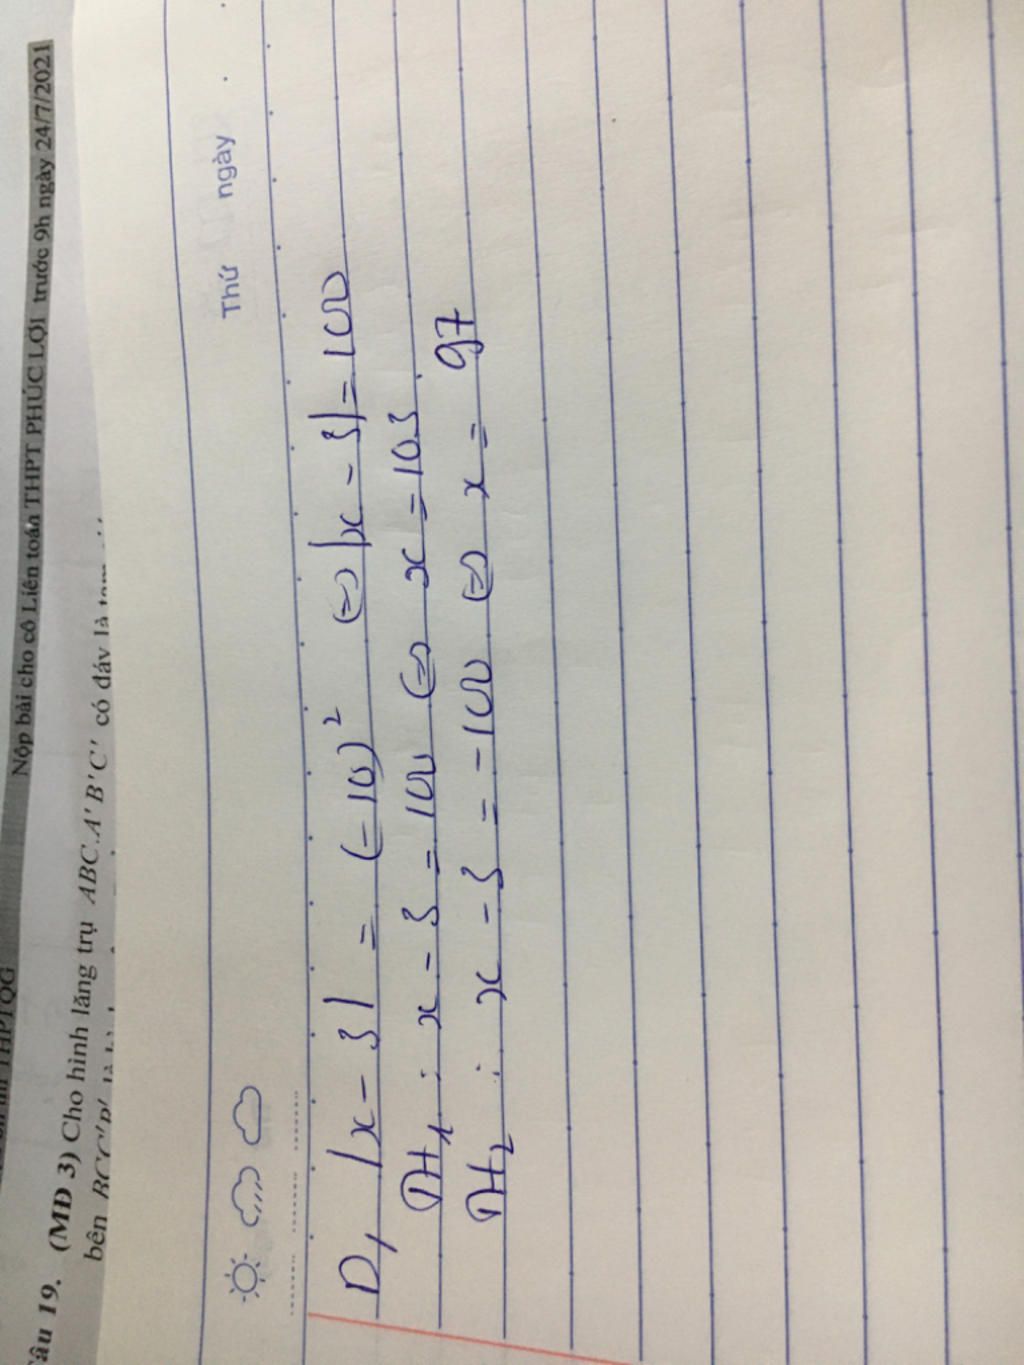 Nộp bài cho cô Liên toán THPT PHÚC LỢI trước 9h ngày 24/7/2021
Câu 19. (MĐ 3) Cho hình lăng trụ ABC.A'B'C' có đáy là
bên
Thứ ngày
D, |x - 3| = (-10)² (=) |x - 3| = 100
TH1: x - 3 = 100 (=) x = 103.
TH2: x - 3 = -100 (=) x = 97